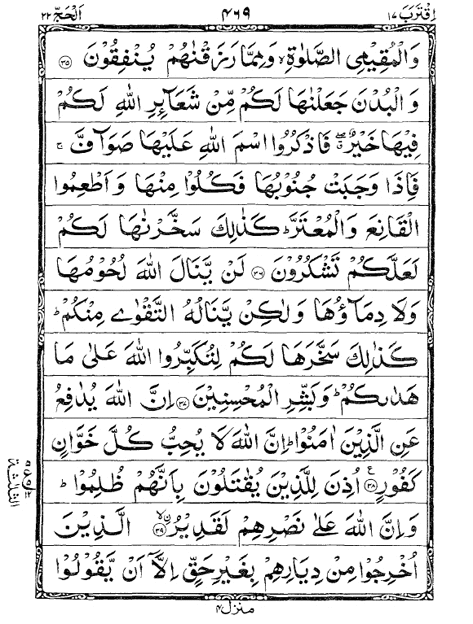 اِقْتَرَبَ ١٧ ٤٦٩ اَلْحَجّ ٢٢
وَالْمُقِيْمِى الصَّلٰوةِ ۙ وَمِمَّا رَزَقْنٰهُمْ يُنْفِقُوْنَ ۝٣٥
وَالْبُدْنَ جَعَلْنٰهَا لَكُمْ مِّنْ شَعَآئِرِ اللّٰهِ لَكُمْ
فِيْهَا خَيْرٌ ۖۗ فَاذْكُرُوا اسْمَ اللّٰهِ عَلَيْهَا صَوَآفَّ ۚ
فَاِذَا وَجَبَتْ جُنُوْبُهَا فَكُلُوْا مِنْهَا وَاَطْعِمُوا
الْقَانِعَ وَالْمُعْتَرَّ ؕ كَذٰلِكَ سَخَّرْنٰهَا لَكُمْ
لَعَلَّكُمْ تَشْكُرُوْنَ ۝٣٦ لَنْ يَّنَالَ اللّٰهَ لُحُوْمُهَا
وَلَا دِمَآؤُهَا وَلٰكِنْ يَّنَالُهُ التَّقْوٰى مِنْكُمْ ؕ
كَذٰلِكَ سَخَّرَهَا لَكُمْ لِتُكَبِّرُوا اللّٰهَ عَلٰى مَا
هَدٰىكُمْ ؕ وَبَشِّرِ الْمُحْسِنِيْنَ ۝٣٧ اِنَّ اللّٰهَ يُدٰفِعُ
عَنِ الَّذِيْنَ اٰمَنُوْا ؕ اِنَّ اللّٰهَ لَا يُحِبُّ كُلَّ خَوَّانٍ
كَفُوْرٍ ۝٣٨ ع اُذِنَ لِلَّذِيْنَ يُقٰتَلُوْنَ بِاَنَّهُمْ ظُلِمُوْا ؕ
وَاِنَّ اللّٰهَ عَلٰى نَصْرِهِمْ لَقَدِيْرُ ۝٣٩ۙ الَّذِيْنَ
اُخْرِجُوْا مِنْ دِيَارِهِمْ بِغَيْرِ حَقٍّ اِلَّاۤ اَنْ يَّقُوْلُوْا
منزل ٤